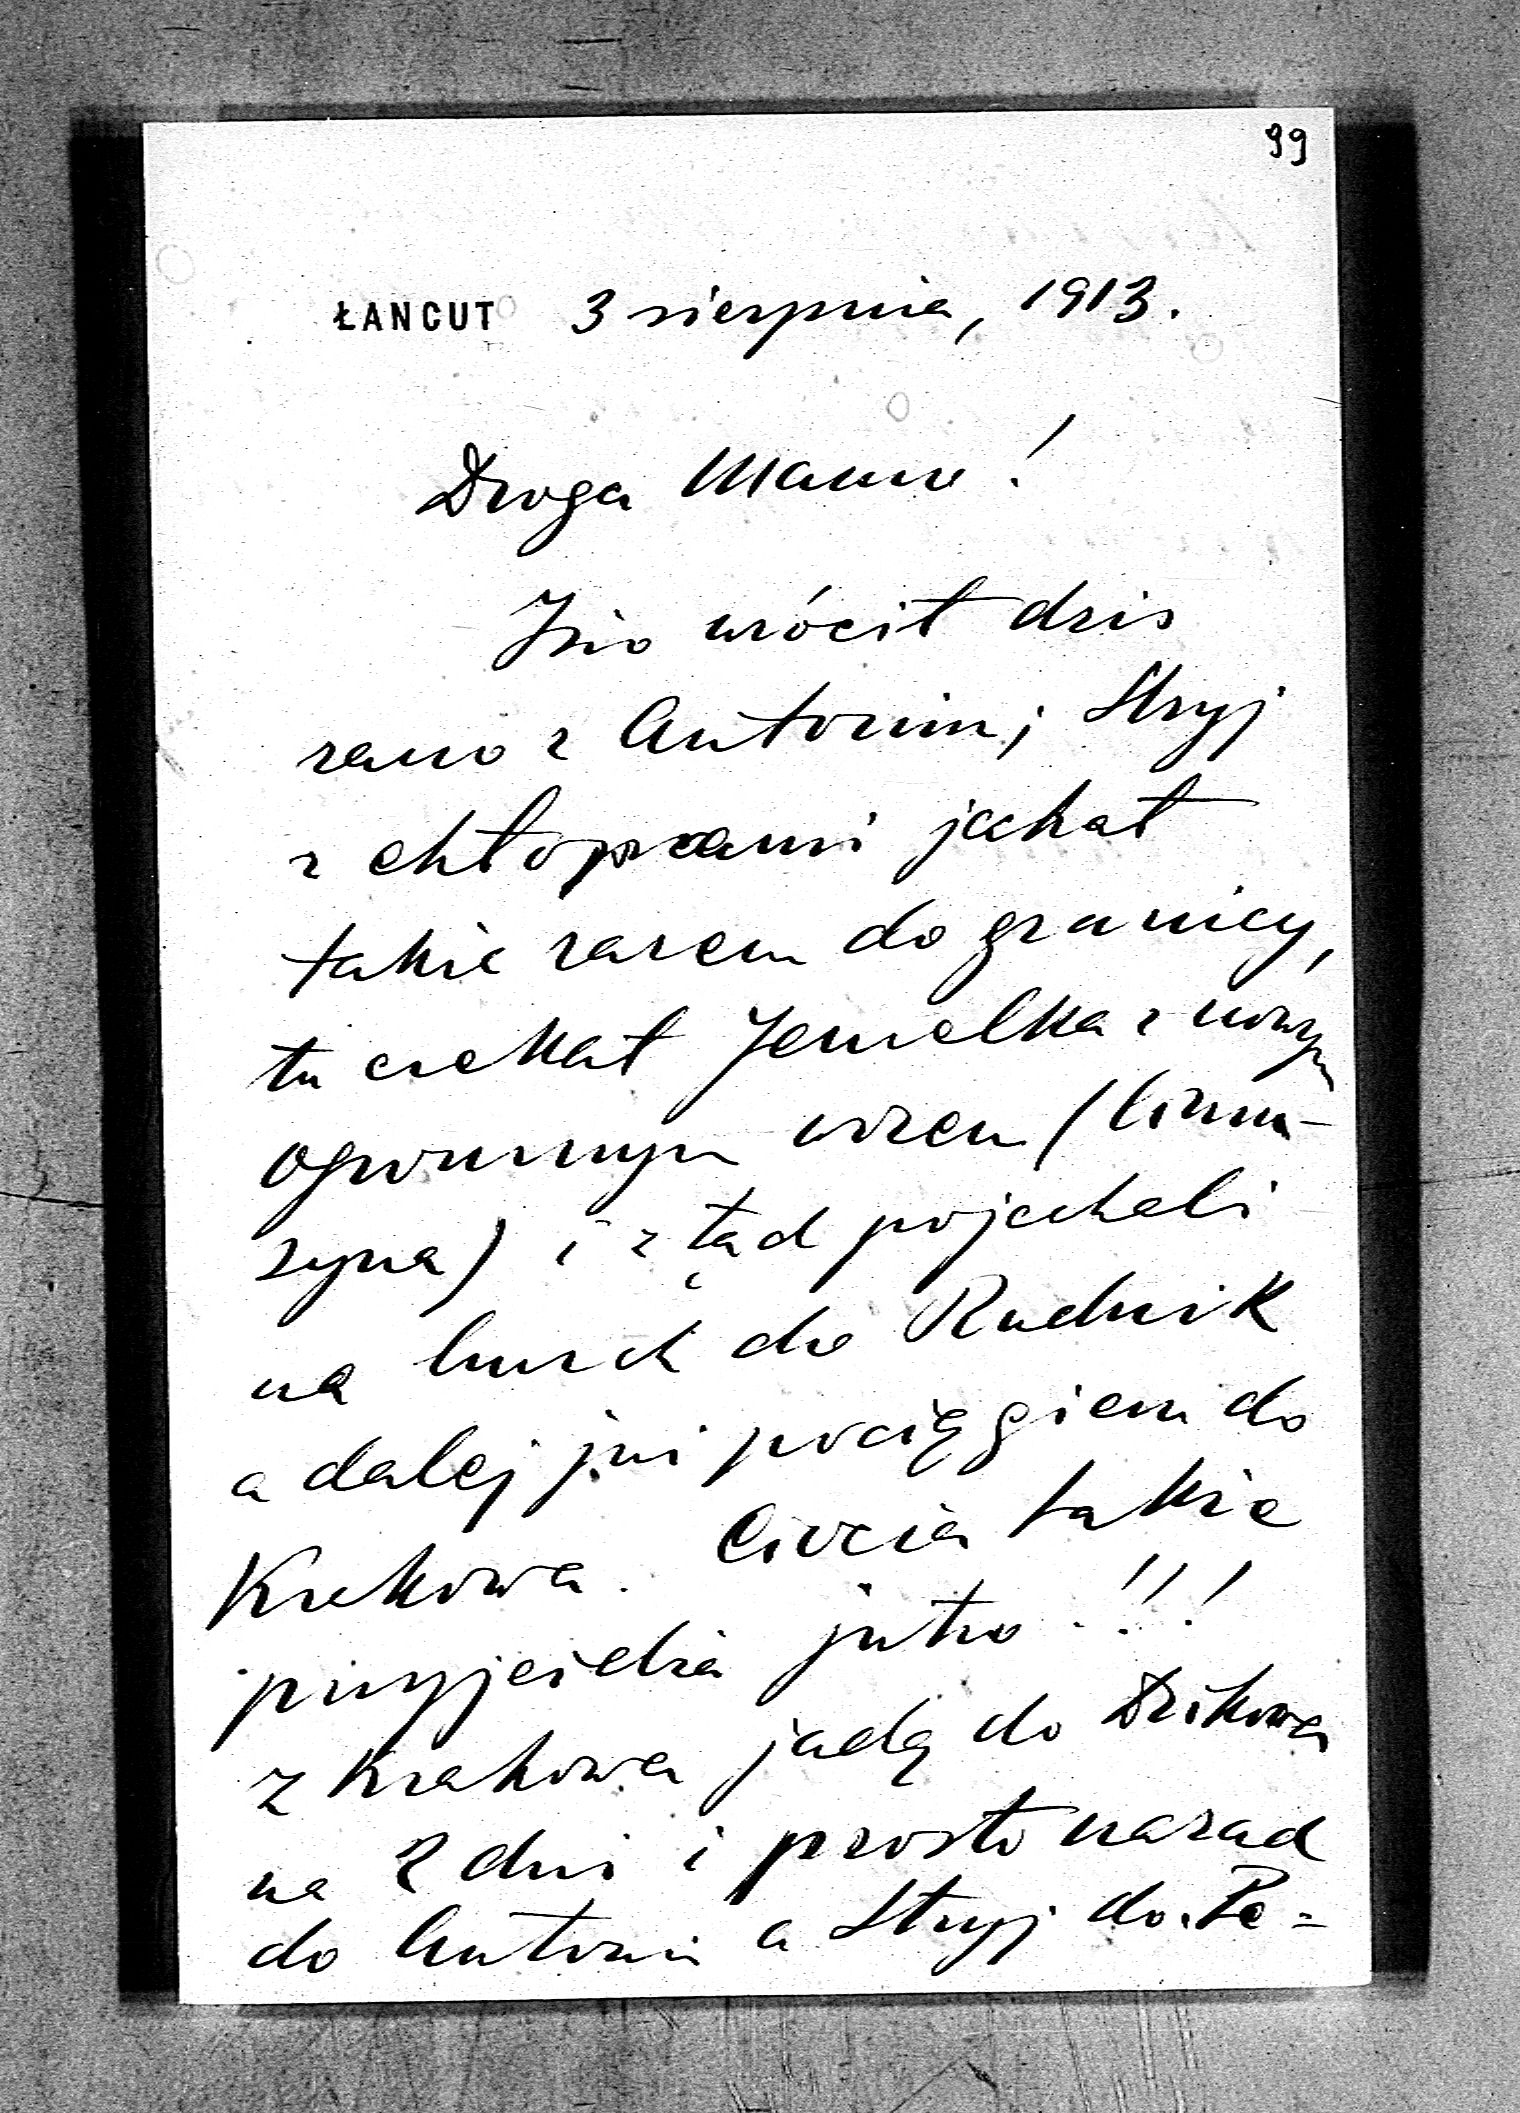 99
ŁANCUT 3 sierpnia, 1913.
Droga Mamo!
Józio wrócił dziś
rano z Antonin; Stryj
z chłopcami jechał
także razem do granicy,
tu czekał Jemelka z nowym
ogromnym wozem (limu-
zyna) i z tąd pojechali
na lunch do Rudnik
a dalej już pociągiem do
Krakowa. Ciocia także
przyjeżdża jutro!!!
z Krakowa jadą do Dzikowa
na 2 dni i prosto nazad
do Antonin a Stryj do. Pe=